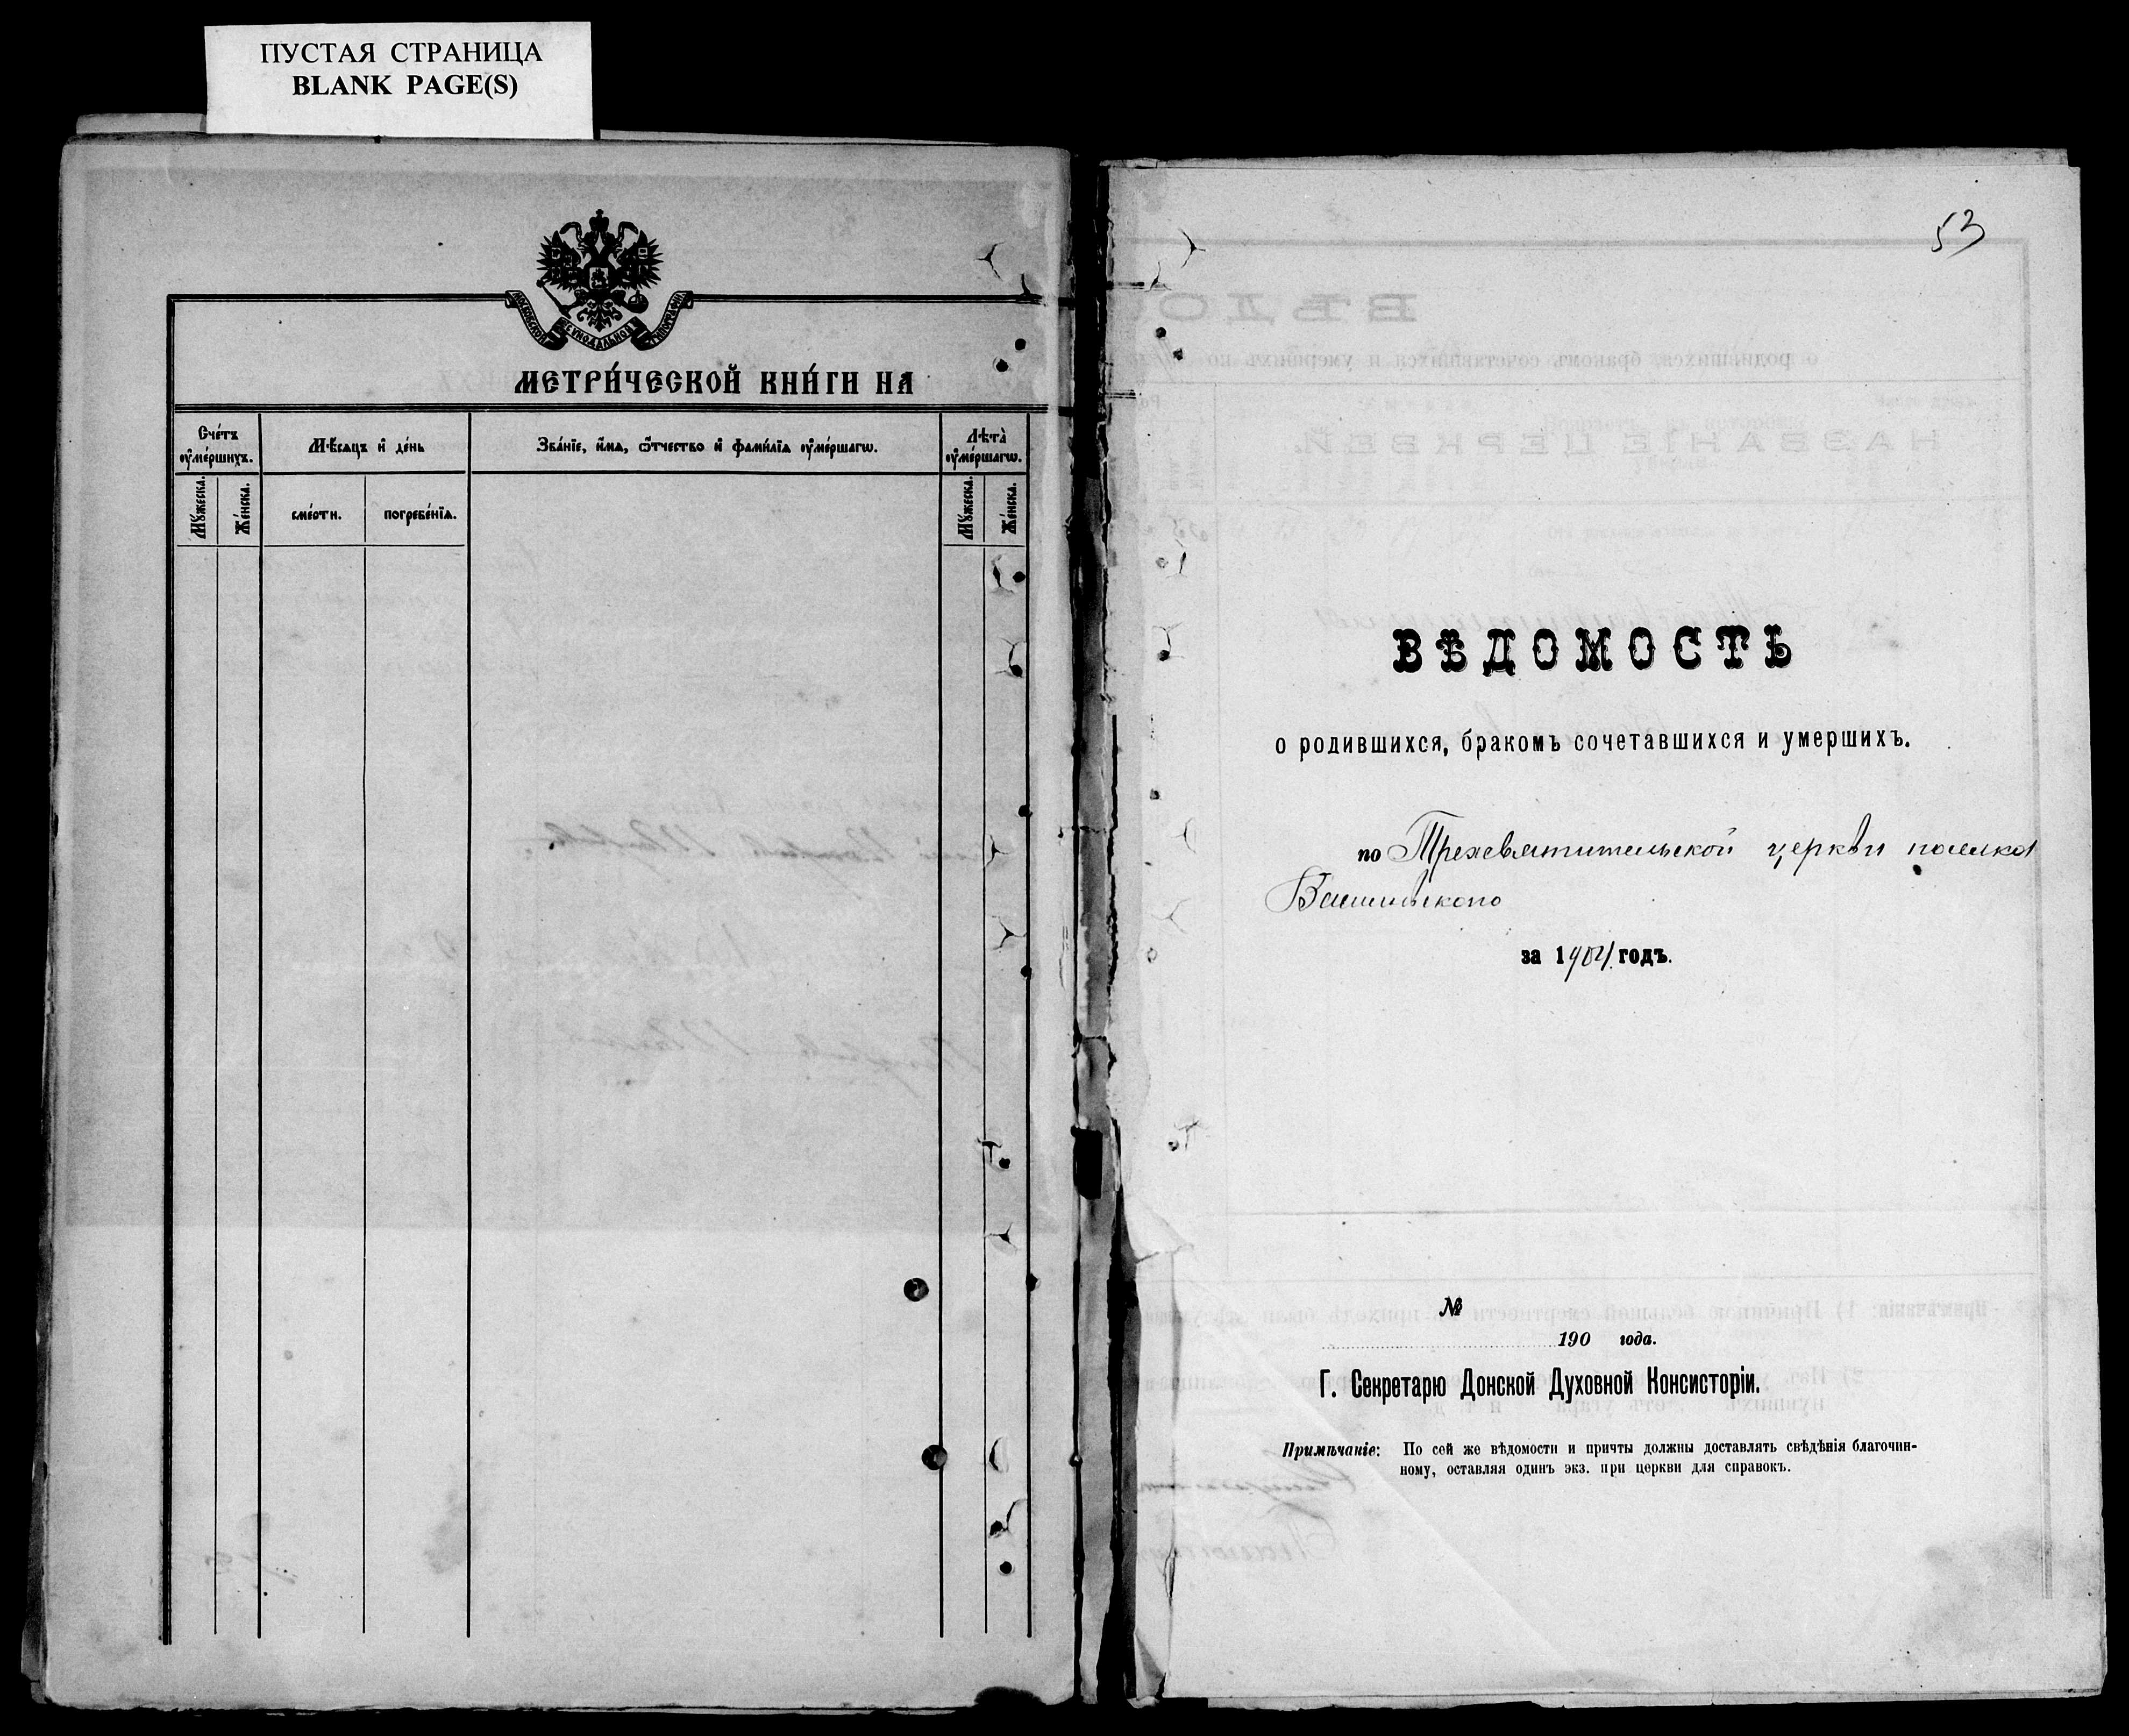 ПУСТАЯ СТРАНИЦА
BLANK PAGE(S)
МОСКОВСКОЙ СѴНОДАЛЬНОЙ ТИПОГРАФІИ
МЕТРИ́ЧЕСКОЙ КНИ́ГИ НА
Сче́тъ ᲂу҆ме́ршихъ.
Мѣ́сяцъ и҆ де́нь
Зва́нїе, и҆́мѧ, ѻ҆́тчество и҆ фами́лїѧ ᲂу҆ме́ршагѡ.
Лѣта̀ ᲂу҆ме́ршагѡ.
Мꙋ́жеска.
Же́нска.
сме́рти.
погребе́нїѧ.
Мꙋ́жеска.
Же́нска.
53
ВѢДОМОСТЬ
о родившихся, бракомъ сочетавшихся и умершихъ.
по Трехсвятительской церкви поселка
Васильевского
за 1904 годъ.
№
190 года.
Г. Секретарю Донской Духовной Консисторіи.
Примѣчаніе: По сей же вѣдомости и причты должны доставлять свѣдѣнія благочин-
ному, оставляя одинъ экз. при церкви для справокъ.